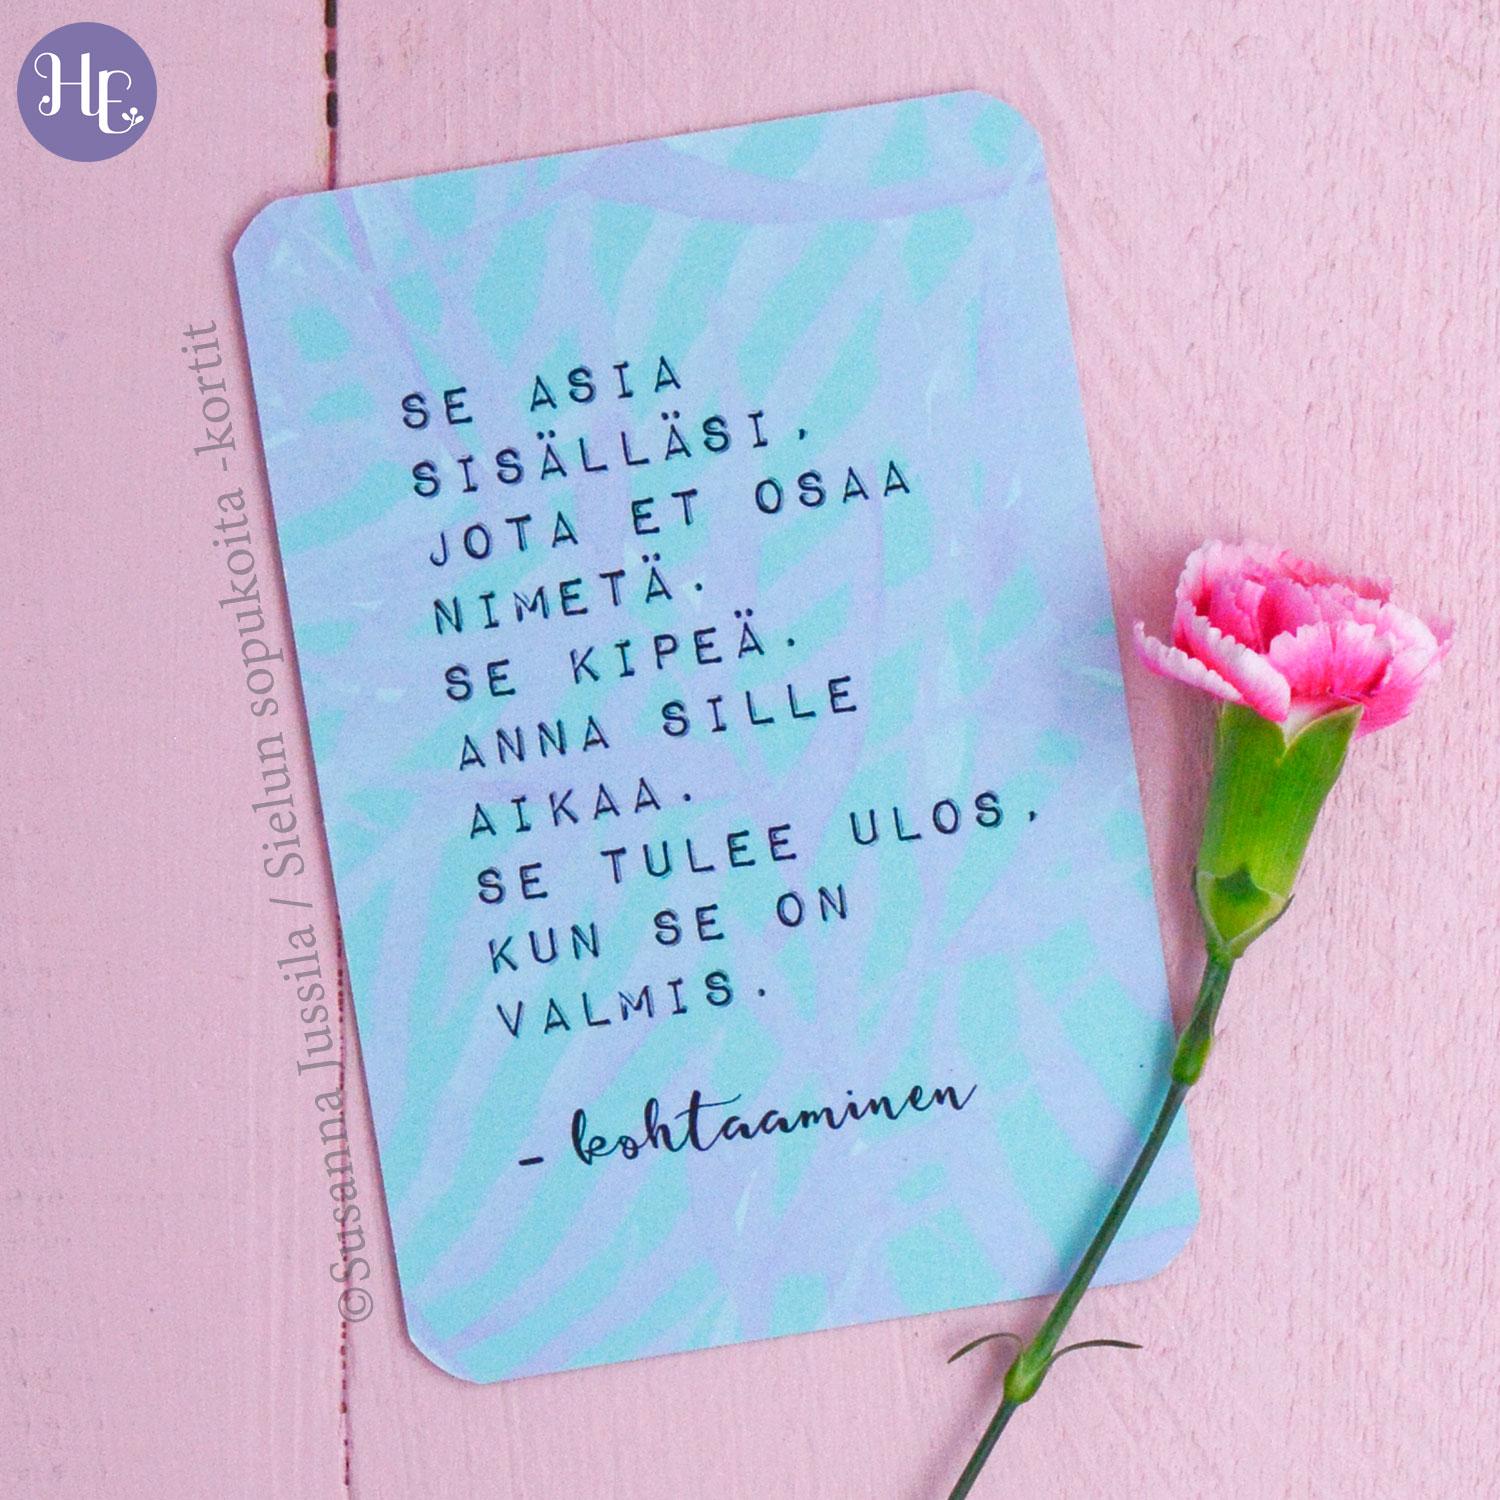 HE
SE ASIA
SISÄLLÄSI,
JOTA ET OSAA
NIMETÄ.
SE KIPEÄ.
ANNA SILLE
AIKAA.
SE TULEE ULOS,
KUN SE ON
VALMIS.
- kohtaaminen
©Susanna Jussila / Sielun sopukoita -kortit